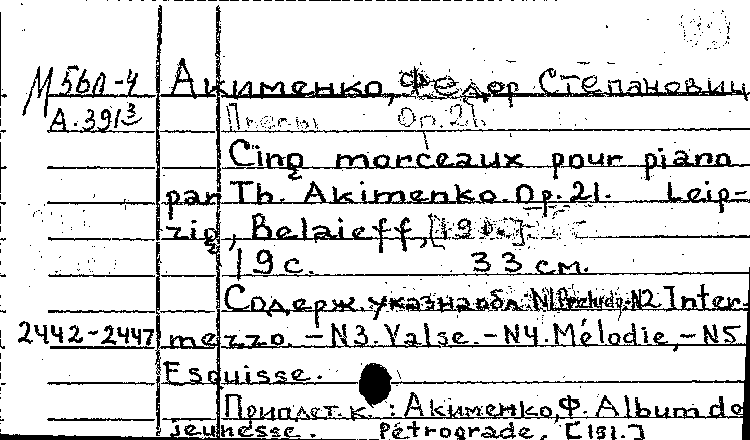 М 56Л-4 Акименко, Федор Степанович
А.391³ Пьесы Op.21.
Cinq morceaux pour piano
par Th. Akimenko. Op.21. Leip-
zig, Belaieff,
19 с. 33 см.
Содерж. указ. на обл. N1 Prélude,-N2 Inter-
2442-2447 mezzo. - N3. Valse. - N4. Mélodie, - N5
Esquisse.
Приплет. к. : Акименко, Ф. Album de
jeunesse. Pétrograde, [191.]